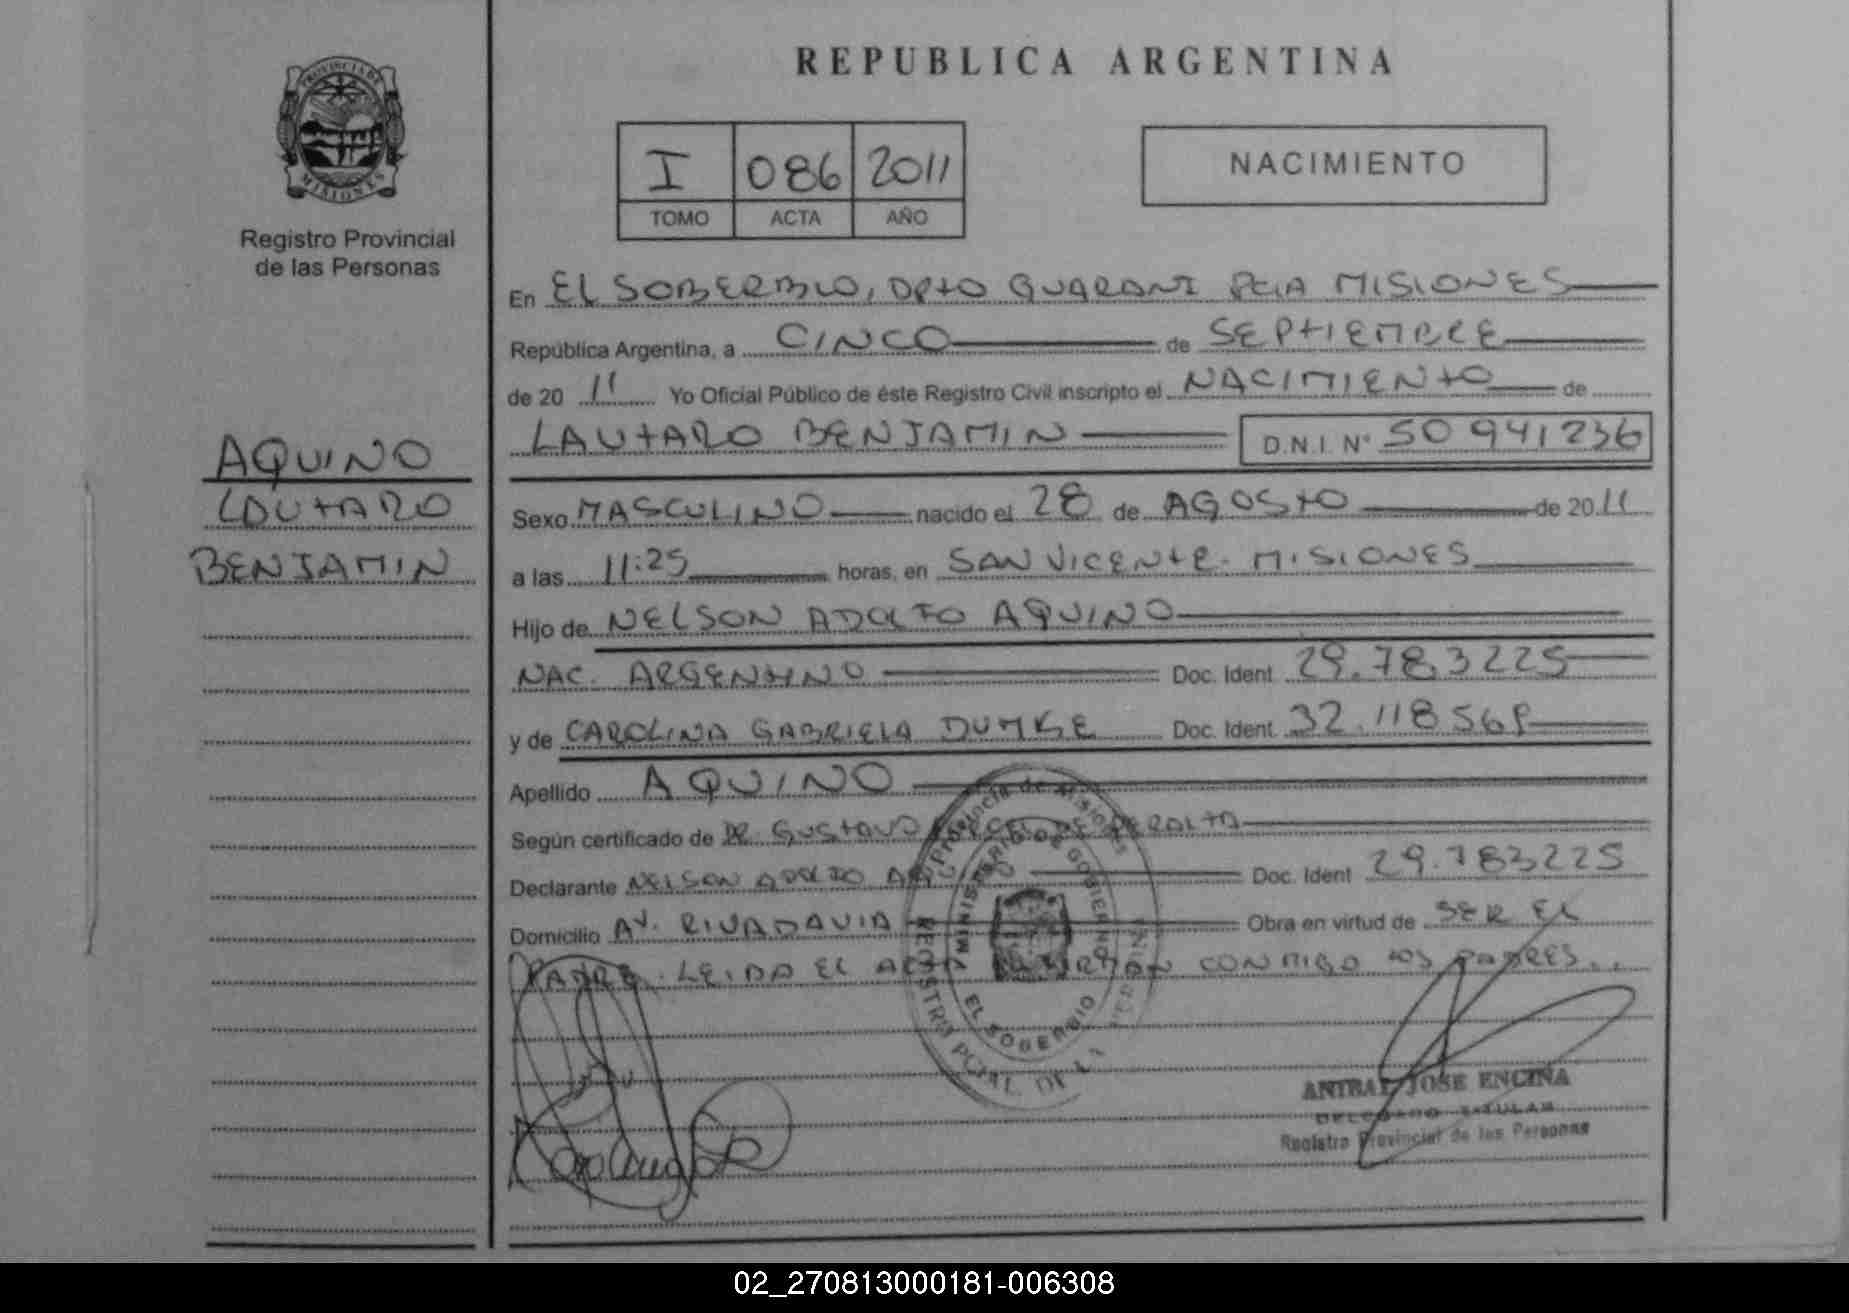 PROVINCIA DE
MISIONES
Registro Provincial
de las Personas
AQUINO
LAUTARO
BENJAMIN
REPUBLICA ARGENTINA
I 086 2011
TOMO ACTA AÑO
NACIMIENTO
En EL SOBERBIO, DPTO GUARANI PCIA MISIONES
República Argentina, a CINCO de SEPTIEMBRE
de 20 11 Yo Oficial Público de éste Registro Civil inscripto el NACIMIENTO de
LAUTARO BENJAMIN D.N.I. N° 50 941236
Sexo MASCULINO nacido el 28 de AGOSTO de 2011
a las 11:25 horas, en SAN VICENTE. MISIONES
Hijo de NELSON ADOLFO AQUINO
NAC. ARGENTINO Doc. Ident. 29.783225
y de CAROLINA GABRIELA DUMKE Doc. Ident. 32.118569
Apellido AQUINO
Según certificado de DR. GUSTAVO PERALTA
Declarante NELSON ADOLFO Doc. Ident 29.783225
Domicilio AV. RIVADAVIA Obra en virtud de SER EL
PADRE. LEIDA EL ACTA FIRMAN CONMIGO LOS PADRES..
Provincia de Misiones
MINISTERIO DE GOBIERNO
EL SOBERBIO
ANIBAL JOSE ENCINA
DELEGADO TITULAR
Registro Provincial de las Personas
02_270813000181-006308